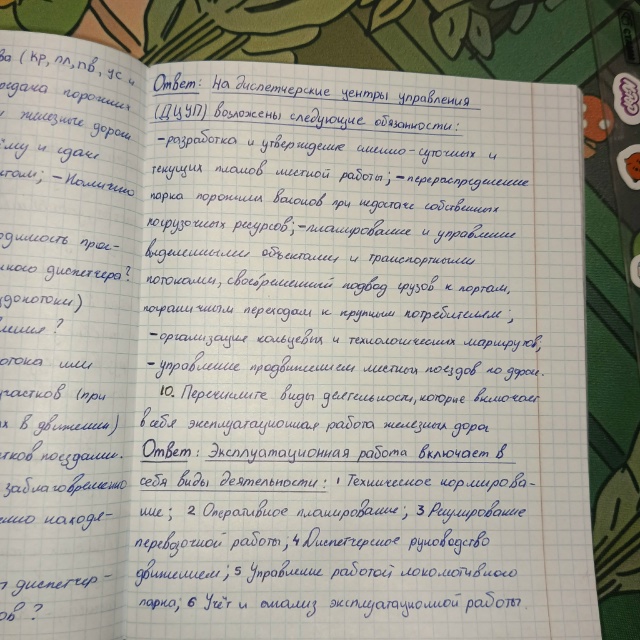 ва (КР, ПЛ, ПВ, УС и
Ответ: На диспетчерские центры управления
(ДЦУП) возложены следующие обязанности:
-разработка и утверждение сменно-суточных и
текущих планов местной работы; -перераспределение
парка порожних вагонов при недостаче собственных
погрузочных ресурсов; -планирование и управление
выделенными объектами и транспортными
потоками, своевременный подвод грузов к портам,
пограничным переходам к крупным потребителям;
-организация кольцевых и технологических маршрутов;
-управление продвижением местных поездов по дороге.
10. Перечислите виды деятельности, которые включает
в себя эксплуатационная работа железных дорог
Ответ: Эксплуатационная работа включает в
себя виды деятельности: 1 Техническое нормирова-
ние; 2 Оперативное планирование; 3 Регулирование
перевозочной работы; 4 Диспетчерское руководство
движением; 5 Управление работой локомотивного
парка; 6 Учёт и анализ эксплуатационной работы.
порожних
железные дороги
ему и сдаче
-Наличию
димость прос-
ного диспетчера?
здопотоки)
отока или
участков (при
х в движении)
тков поездами.
заблаговременно
но находя-
диспетчер-
ов?